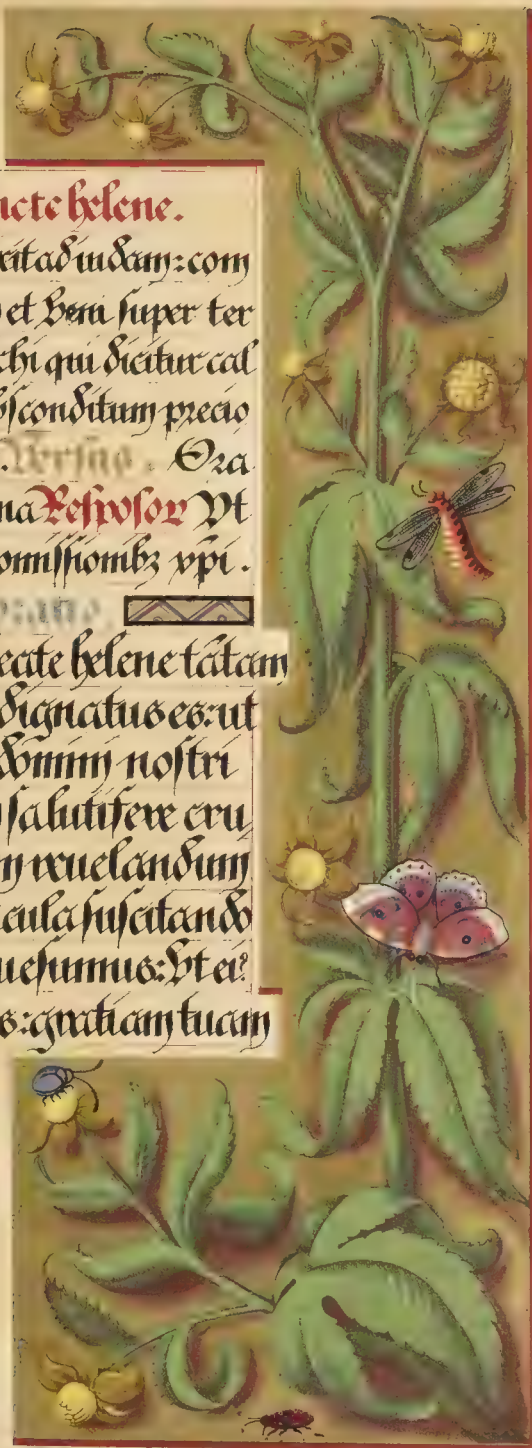 ncte helene.
xit ad iudam: com
et veni super ter
chi qui dicitur cal
bsconditum precio
Versus. Ora
na Resposor Vt
omissiombz xpi.
Oratio.
eate helene tātam
dignatus es: ut
domini nostri
salutifere cru
m reuelandum
cula suscitando
uesumus: Vt ei'
s: gratiam tuam